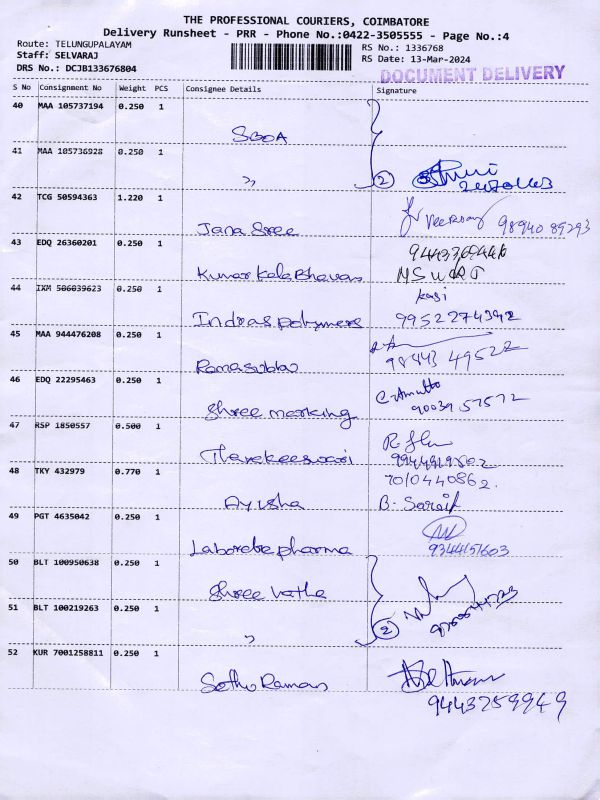 THE PROFESSIONAL COURIERS, COIMBATORE
Delivery Runsheet - PRR - Phone No.:0422-3505555 - Page No.:4
Route: TELUNGUPALAYAM
RS No.: 1336768
Staff: SELVARAJ
RS Date: 13-Mar-2024
DRS No.: DCJB133676804
DOCUMENT DELIVERY
S No Consignment No Weight PCS Consignee Details Signature
40 MAA 105737194 0.250 1
41 MAA 105736928 0.250 1
" 2
42 TCG 50594363 1.220 1
Jana Sree 98940 89293
43 EDQ 26360201 0.250 1
Kumar Kala Bhavan
44 IXM 506039623 0.250 1 kasi
Indras polymers 9952274392
45 MAA 944476208 0.250 1
Ramasubbu 98843 49522
46 EDQ 22295463 0.250 1
Shree marking 90039 57572
47 RSP 1850557 0.500 1
Tharakeeswari
48 TKY 432979 0.770 1 7010440862.
Ayusha
49 PGT 4635042 0.250 1
Laborate pharma 9344151603
50 BLT 100950638 0.250 1
Shree vatha
51 BLT 100219263 0.250 1
" 2
52 KUR 7001258811 0.250 1
Sethu Raman
9443259949